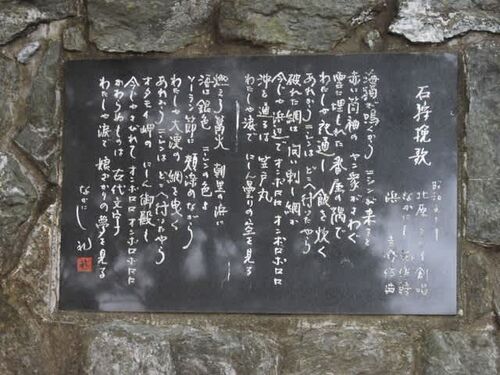 石狩挽歌
昭和五十年
北原ミレイ創唱
なかにし礼作詩
浜圭介作曲
海猫が鳴くから ニシンが来ると
赤い筒袖の ヤン衆がさわぐ
雪に埋もれた 番屋の隅で
わたしゃ夜通し 飯を炊く
あれからニシンは どこへ行ったやら
破れた網は 問い刺し網か
今じゃ浜辺で オンボロロ オンボロボロロ
沖を通るは 笠戸丸
わたしゃ涙で にしん曇りの空を見る
燃えろ篝火 朝里の浜に
海は銀色 ニシンの色よ
ソーラン節に 頬そめながら
わたしゃ大漁の 網を曳く
あれからニシンは どこへ行ったやら
オタモイ岬の にしん御殿も
今じゃさびれて オンボロロ オンボロボロロ
かわらぬものは 古代文字
わたしゃ涙で 娘ざかりの夢を見る
なかにし礼